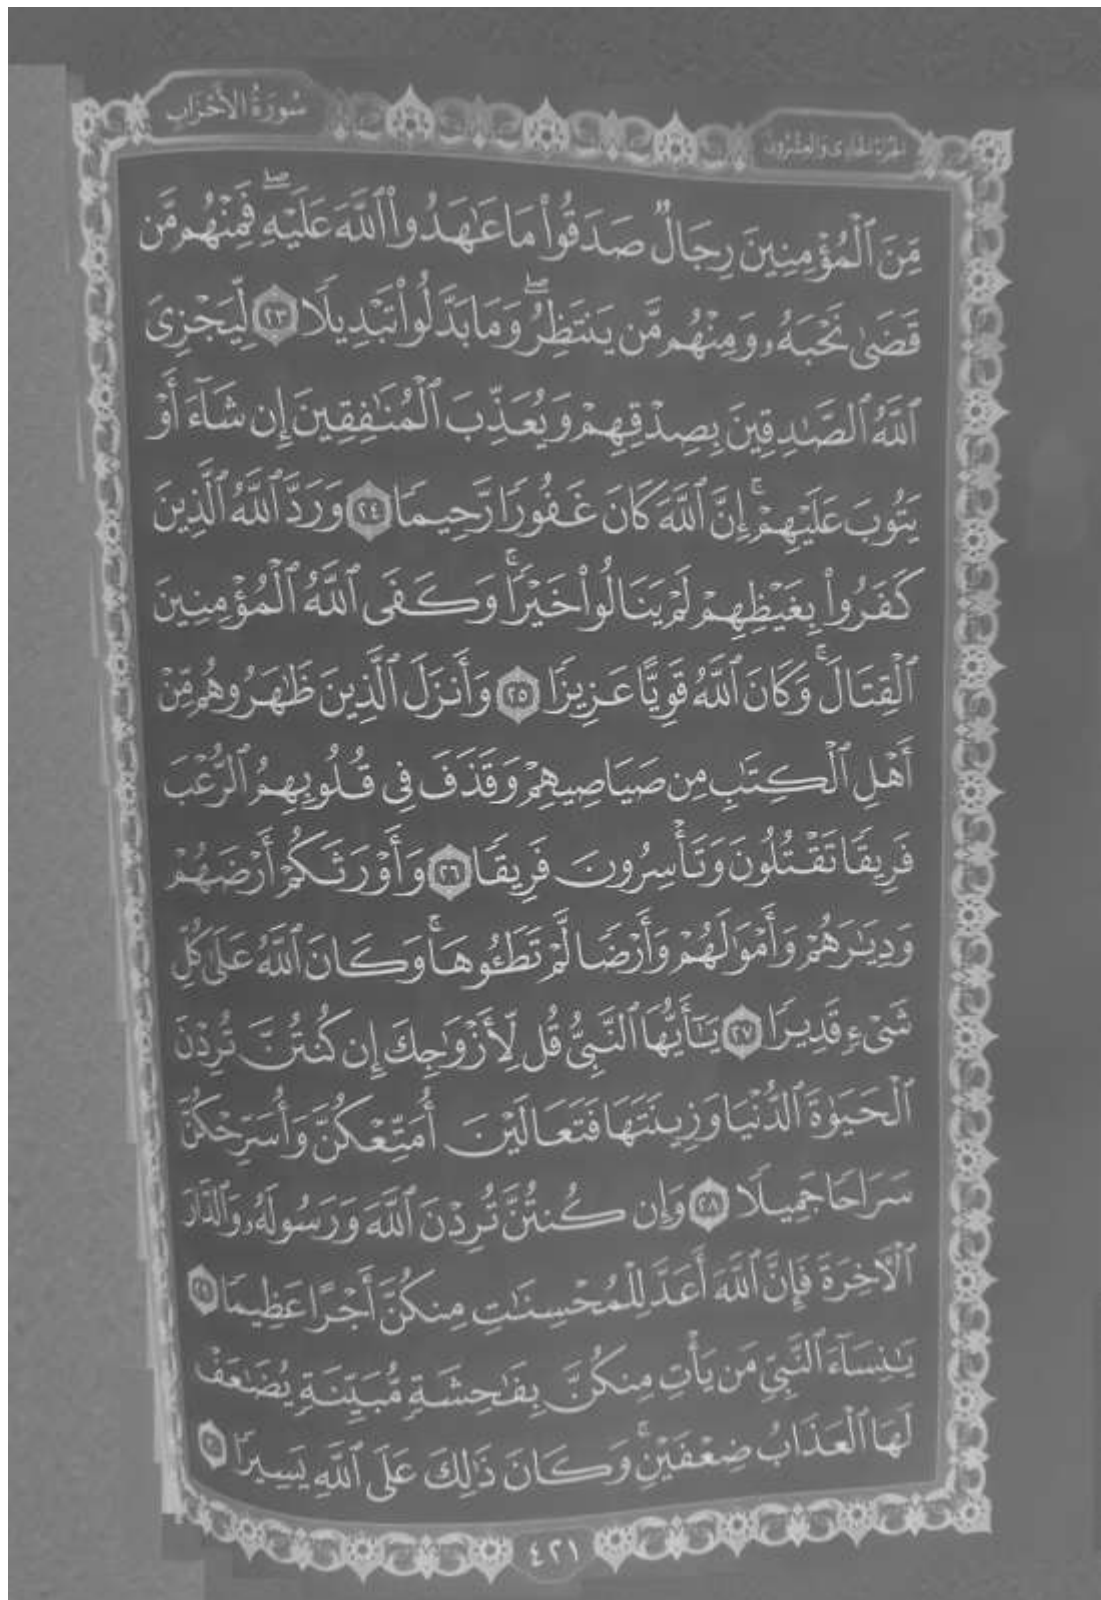 الجزء الحادي والعشرون
سُورَةُ الأَحْزَابِ
مِّنَ ٱلْمُؤْمِنِينَ رِجَالٌ صَدَقُوا۟ مَا عَٰهَدُوا۟ ٱللَّهَ عَلَيْهِ ۖ فَمِنْهُم مَّن
قَضَىٰ نَحْبَهُۥ وَمِنْهُم مَّن يَنتَظِرُ ۖ وَمَا بَدَّلُوا۟ تَبْدِيلًا ٢٣ لِّيَجْزِىَ
ٱللَّهُ ٱلصَّٰدِقِينَ بِصِدْقِهِمْ وَيُعَذِّبَ ٱلْمُنَٰفِقِينَ إِن شَآءَ أَوْ
يَتُوبَ عَلَيْهِمْ ۚ إِنَّ ٱللَّهَ كَانَ غَفُورًا رَّحِيمًا ٢٤ وَرَدَّ ٱللَّهُ ٱلَّذِينَ
كَفَرُوا۟ بِغَيْظِهِمْ لَمْ يَنَالُوا۟ خَيْرًا ۚ وَكَفَى ٱللَّهُ ٱلْمُؤْمِنِينَ
ٱلْقِتَالَ ۚ وَكَانَ ٱللَّهُ قَوِيًّا عَزِيزًا ٢٥ وَأَنزَلَ ٱلَّذِينَ ظَٰهَرُوهُم مِّنْ
أَهْلِ ٱلْكِتَٰبِ مِن صَيَاصِيهِمْ وَقَذَفَ فِى قُلُوبِهِمُ ٱلرُّعْبَ
فَرِيقًا تَقْتُلُونَ وَتَأْسِرُونَ فَرِيقًا ٢٦ وَأَوْرَثَكُمْ أَرْضَهُمْ
وَدِيَٰرَهُمْ وَأَمْوَٰلَهُمْ وَأَرْضًا لَّمْ تَطَـُٔوهَا ۚ وَكَانَ ٱللَّهُ عَلَىٰ كُلِّ
شَىْءٍ قَدِيرًا ٢٧ يَٰٓأَيُّهَا ٱلنَّبِىُّ قُل لِّأَزْوَٰجِكَ إِن كُنتُنَّ تُرِدْنَ
ٱلْحَيَوٰةَ ٱلدُّنْيَا وَزِينَتَهَا فَتَعَالَيْنَ أُمَتِّعْكُنَّ وَأُسَرِّحْكُنَّ
سَرَاحًا جَمِيلًا ٢٨ وَإِن كُنتُنَّ تُرِدْنَ ٱللَّهَ وَرَسُولَهُۥ وَٱلدَّارَ
ٱلْءَاخِرَةَ فَإِنَّ ٱللَّهَ أَعَدَّ لِلْمُحْسِنَٰتِ مِنكُنَّ أَجْرًا عَظِيمًا ٢٩
يَٰنِسَآءَ ٱلنَّبِىِّ مَن يَأْتِ مِنكُنَّ بِفَٰحِشَةٍ مُّبَيِّنَةٍ يُضَٰعَفْ
لَهَا ٱلْعَذَابُ ضِعْفَيْنِ ۚ وَكَانَ ذَٰلِكَ عَلَى ٱللَّهِ يَسِيرًا ٣٠
٤٢١